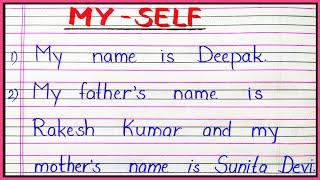 MY-SELF
1) My name is Deepak.
2) My father's name is
Rakesh Kumar and my
mother's name is Sunita Devi.